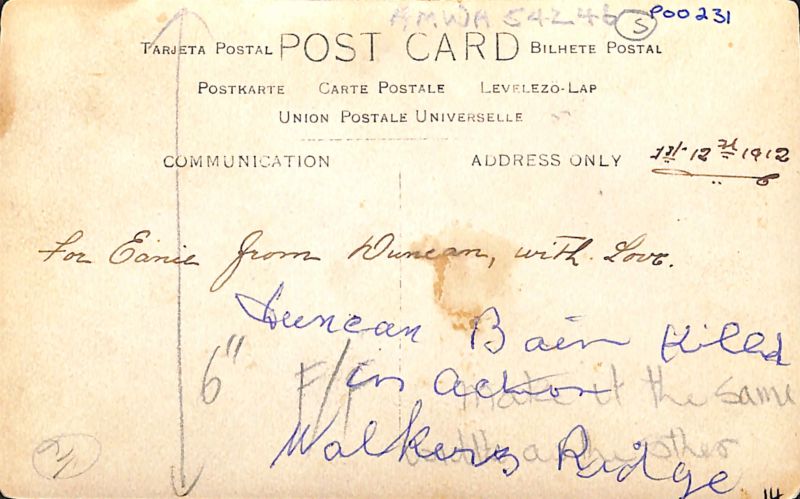 AMWA 54246 S P00231
TARJETA POSTAL POST CARD BILHETE POSTAL
POSTKARTE CARTE POSTALE LEVELEZÖ-LAP
UNION POSTALE UNIVERSELLE
COMMUNICATION ADDRESS ONLY
12 1912
For Eanie from Duncan, with Love.
Duncan Bain Killed
in action
Walkers Ridge
6" F/F
make it the same
as the other
14